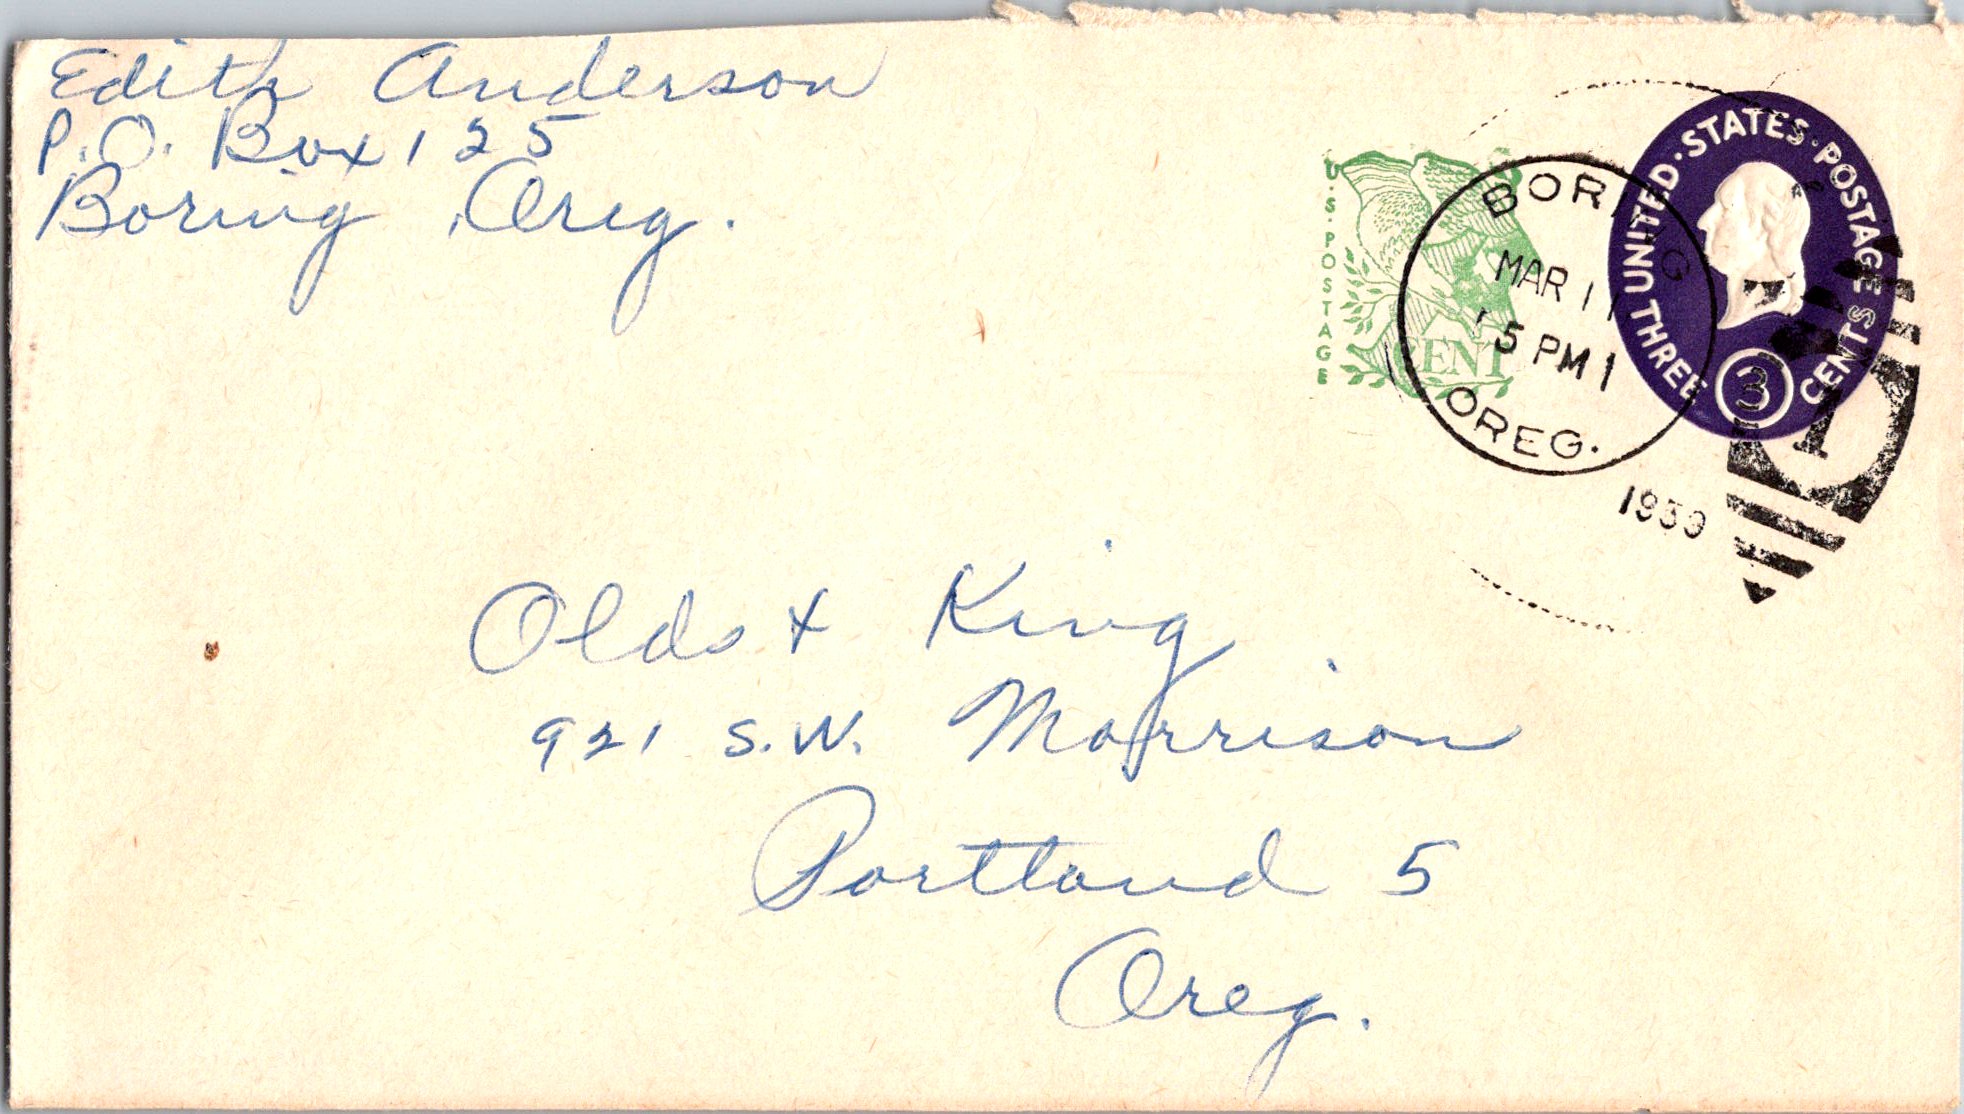 Edith Anderson
P.O. Box 125
Boring, Oreg.
U.S. POSTAGE
CENT
BORING
MAR 11
5 PM
OREG.
1959
UNITED · STATES · POSTAGE
THREE 3 CENTS
1
Olds + King
921 S.W. Morrison
Portland 5
Oreg.